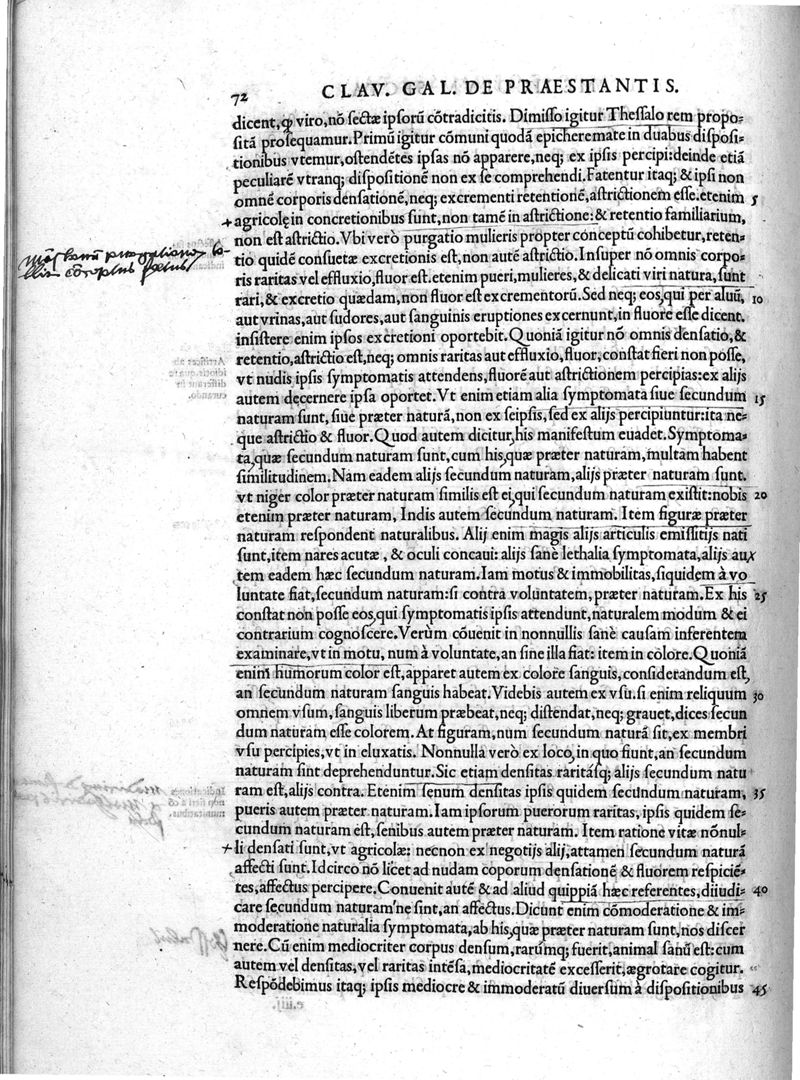 72 CLAV. GAL. DE PRAESTANTIS.
dicent, ꝙ viro, nõ sectæ ipsorũ cõtradicitis. Dimisso igitur Thessalo rem propo-
sitã prosequamur. Primũ igitur cõmuni quodã epicheremate in duabus disposi-
tionibus vtemur, ostendẽtes ipsas nõ apparere, neq; ex ipsis percipi: deinde etiã
peculiarẽ vtranq; dispositionẽ non ex se comprehendi. Fatentur itaq; & ipsi non
omnẽ corporis densationẽ, neq; excrementi retentionẽ, astrictionem esse. etenim 5
+agricolę in concretionibus sunt, non tamẽ in astrictione: & retentio familiarium,
non est astrictio. Vbi verò purgatio mulieris propter conceptũ cohibetur, reten-
tio quidẽ consuetæ excretionis est, non autẽ astrictio. Insuper nõ omnis corpo-
ris raritas vel effluxio, fluor est. etenim pueri, mulieres, & delicati viri natura, sunt
rari, & excretio quædam, non fluor est excrementorũ. Sed neq; eos, qui per aluũ, 10
aut vrinas, aut sudores, aut sanguinis eruptiones excernunt, in fluore esse dicent.
insistere enim ipsos excretioni oportebit. Quoniã igitur nõ omnis densatio, &
retentio, astrictio est, neq; omnis raritas aut effluxio, fluor, constat fieri non posse,
vt nudis ipsis symptomatis attendens, fluorẽ aut astrictionem percipias: ex alijs
autem decernere ipsa oportet. Vt enim etiam alia symptomata siue secundum 15
naturam sunt, siue præter naturã, non ex seipsis, sed ex alijs percipiuntur: ita ne-
que astrictio & fluor. Quod autem dicitur, his manifestum euadet. Symptoma-
ta, quæ secundum naturam sunt, cum his, quæ præter naturam, multam habent
similitudinem. Nam eadem alijs secundum naturam, alijs præter naturam sunt.
vt niger color præter naturam similis est ei, qui secundum naturam existit: nobis 20
etenim præter naturam, Indis autem secundum naturam. Item figuræ præter
naturam respondent naturalibus. Alij enim magis alijs articulis emissitijs nati
sunt, item nares acutæ, & oculi concaui: alijs sanè lethalia symptomata, alijs au
tem eadem hæc secundum naturam. Iam motus & immobilitas, siquidem à vo
luntate fiat, secundum naturam: si contra voluntatem, præter naturam. Ex his 25
constat non posse eos, qui symptomatis ipsis attendunt, naturalem modum & ei
contrarium cognoscere. Verùm cõuenit in nonnullis sanè causam inferentem
examinare, vt in motu, num à voluntate, an sine illa fiat: item in colore. Quoniã
enim humorum color est, apparet autem ex colore sanguis, considerandum est,
an secundum naturam sanguis habeat. Videbis autem ex vsu. si enim reliquum 30
omnem vsum, sanguis liberum præbeat, neq; distendat, neq; grauet, dices secun
dum naturam esse colorem. At figuram, num secundum naturã sit, ex membri
vsu percipies, vt in eluxatis. Nonnulla verò ex loco, in quo fiunt, an secundum
naturam sint deprehenduntur. Sic etiam densitas raritásq; alijs secundum natu
ram est, alijs contra. Etenim senum densitas ipsis quidem secundum naturam, 35
pueris autem præter naturam. Iam ipsorum puerorum raritas, ipsis quidem se-
cundum naturam est, senibus autem præter naturam. Item ratione vitæ nõnul-
+li densati sunt, vt agricolæ: necnon ex negotijs alij, attamen secundum naturã
affecti sunt. Idcirco nõ licet ad nudam coporum densationẽ & fluorem respiciẽ-
tes, affectus percipere. Conuenit autẽ & ad aliud quippiã hæc referentes, diiudi- 40
care secundum naturam'ne sint, an affectus. Dicunt enim cõmoderatione & im-
moderatione naturalia symptomata, ab his, quæ præter naturam sunt, nos discer
nere. Cũ enim mediocriter corpus densum, rarúmq; fuerit, animal sanũ est: cum
autem vel densitas, vel raritas intẽsa, mediocritatẽ excesserit, ægrotare cogitur.
Respõdebimus itaq; ipsis mediocre & immoderatũ diuersum à dispositionibus 45